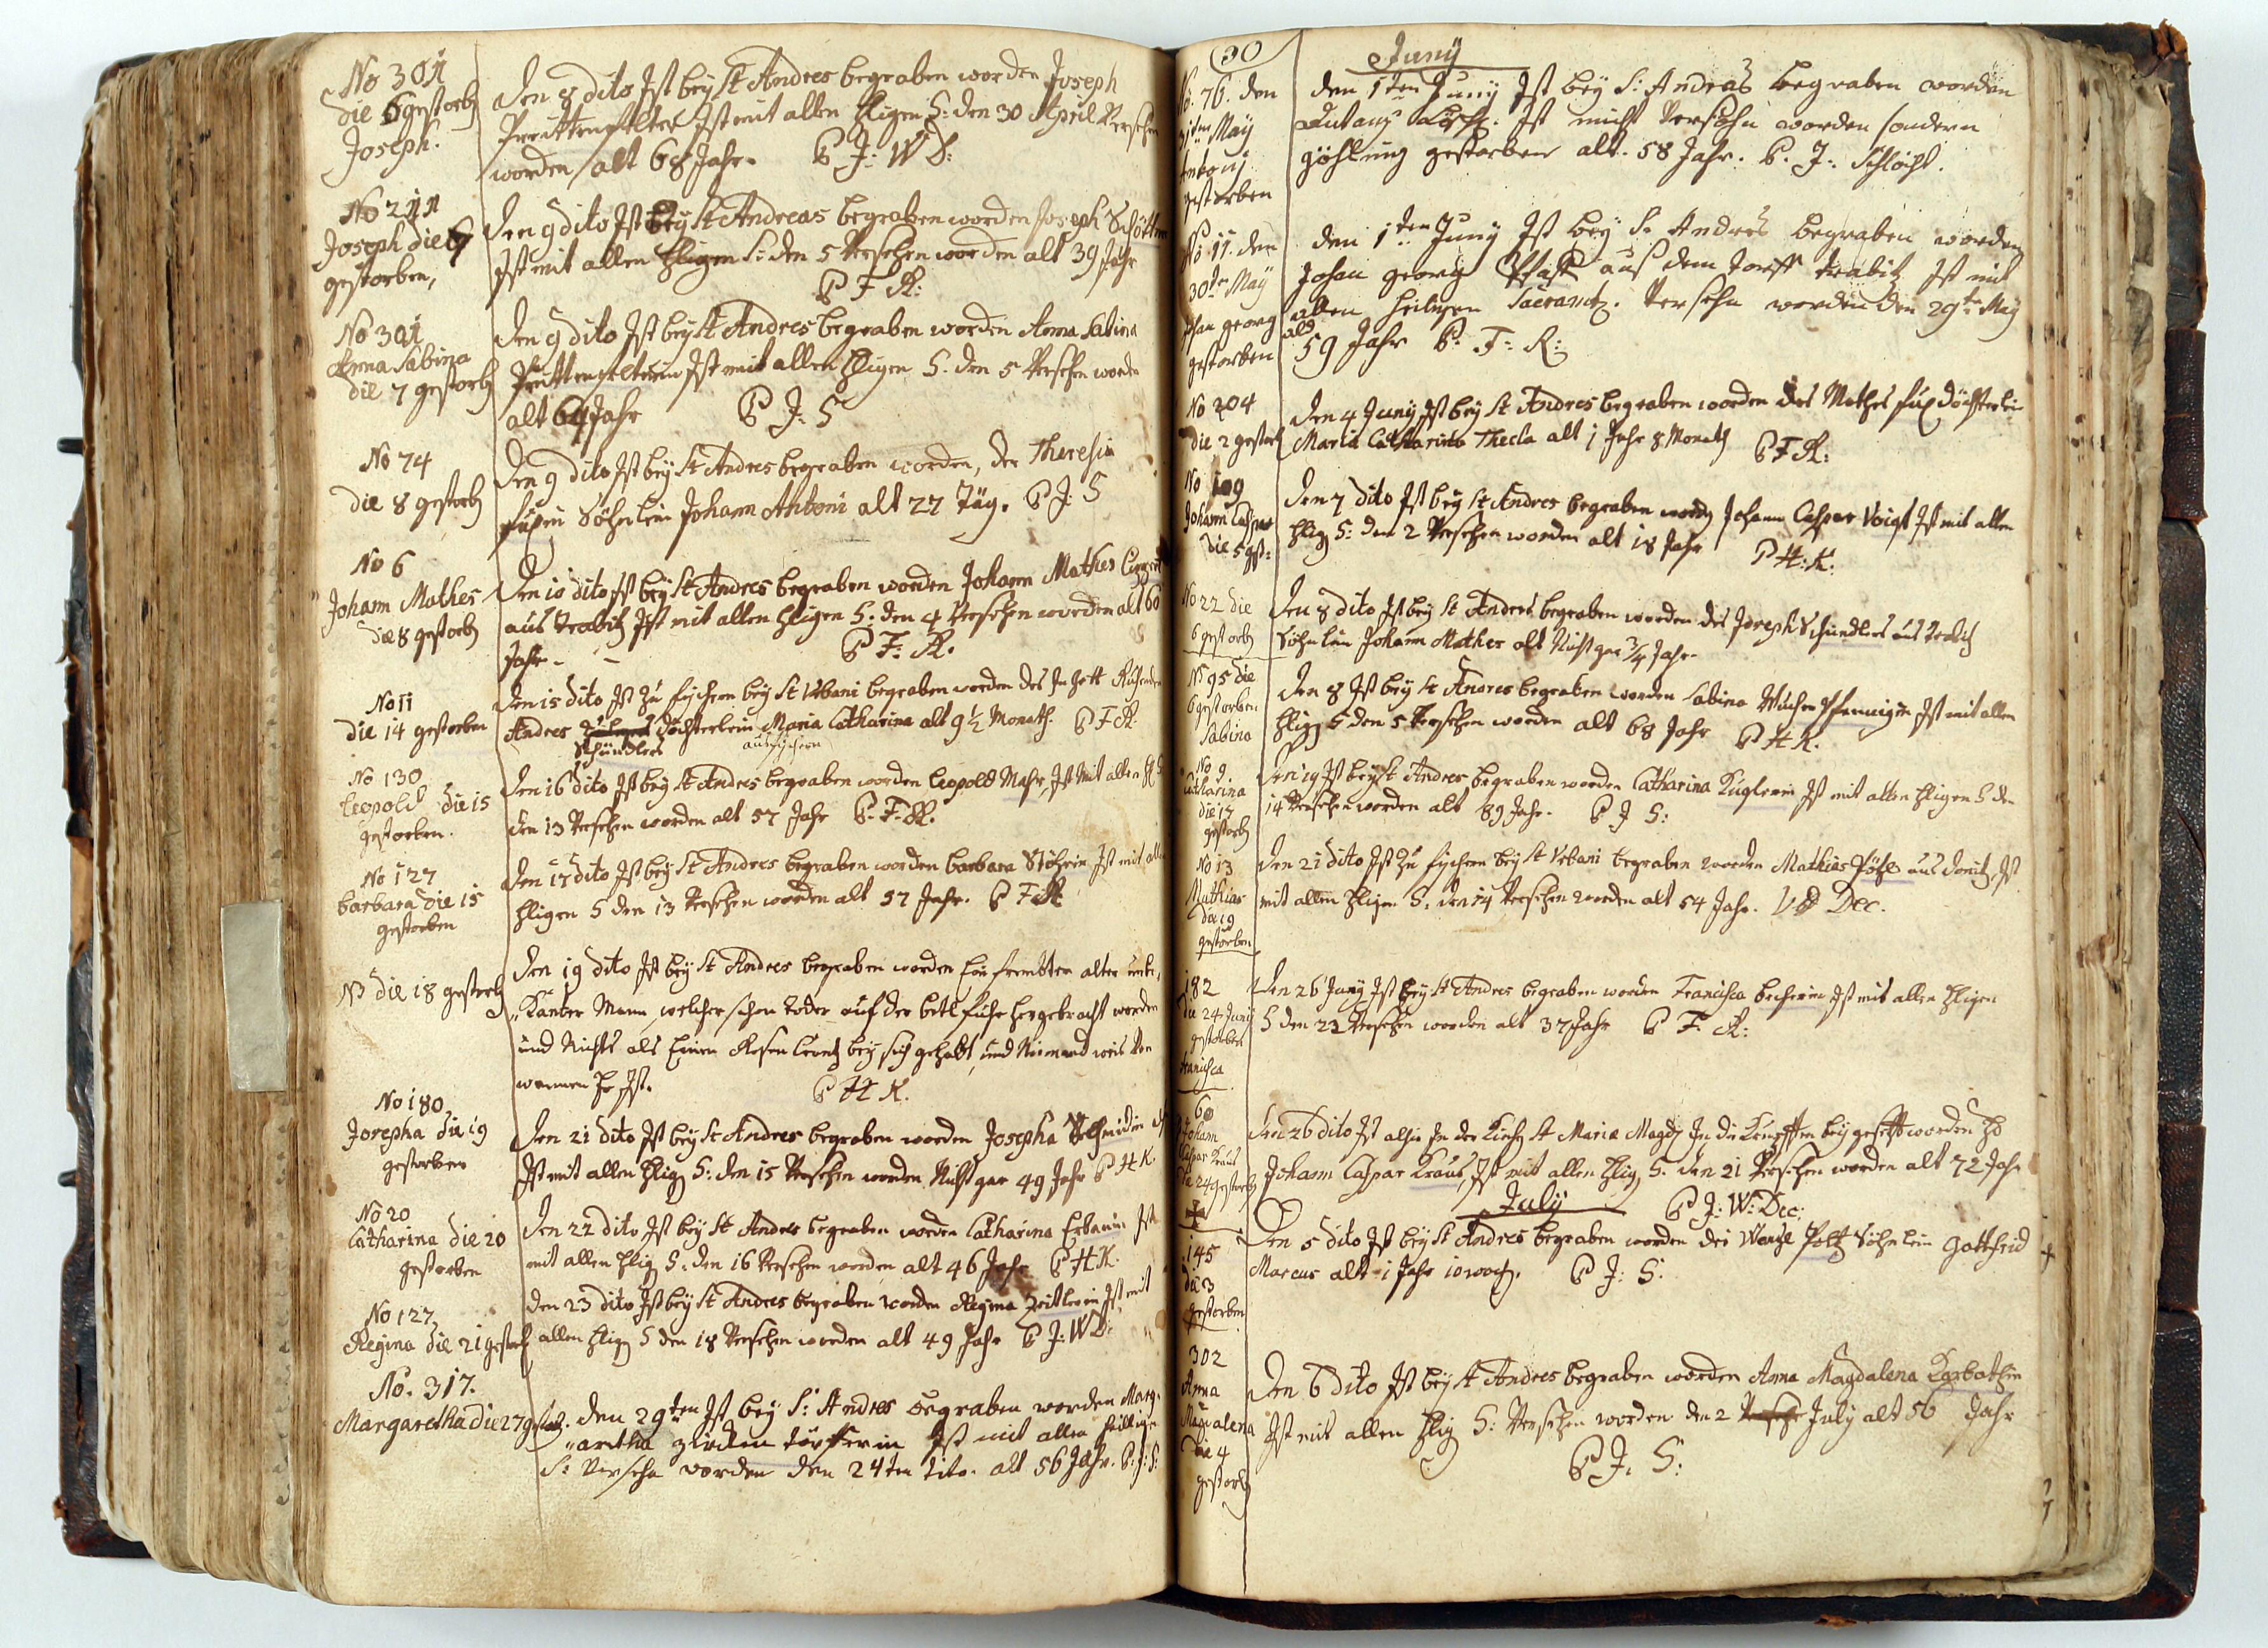 No 301
die 6 gestorb
Joseph.
Den 8 dito Ist bey St Andres begraben worden Joseph
Ist mit allen Hligen S: den 30 April Versehen
worden alt 68 Jahr. P J: W D:
No 211
Joseph die
gestorben,
Den 9 dito Ist bey St Andreas begraben worden Joseph
Ist mit allen Hligen S: den 5 Versehen worden alt 39 Jahr
P F R:
No 301
Anna Sabina
die 7 gestorb
Den 9 dito Ist bey St Andres begraben worden Anna Sabina
Ist mit allen Hligen S. den 5 Versehen worden
alt 64 Jahr P J: S
No 74
die 8 gestorb
Den 9 dito Ist bey St Andres begraben worden, der Theresia
Söhnlein Johann Antoni alt 27 Täg. P J: S
No 6
Johann Mathes
die 8 gestorb
Den 10 dito Ist bey St Andres begraben worden Johann Mathes
aus Trabitz Ist mit allen Hligen S: den 4 Versehen worden alt 60
Jahr - - P F: R.
No 11
die 14 gestorben
Den 15 dito Ist zu bey St Urbani begraben worden des
Andres Döchterlein Maria Catharina alt 9 ½ Monath. P F R.
Schindlers
No 130
Leopold die 15
gestorben.
Den 16 dito Ist bey St Andres begraben worden Leopold Mahr, Ist Mit allen
den 13 Versehen worden alt 57 Jahr P. F: R.
No 127
barbara die 15
gestorben
Den 17 dito Ist bey St Andres begraben worden barbara Ist mit allen
Hligen S den 13 Versehen worden alt 57 Jahr. P F R
die 18 gestorb
Den 19 dito Ist bey St Andres begraben worden Ein frembter alter unbe,
,,Kanter Mann welcher schon Toder auf der bett fuhr hergebracht worden
und Nichts als Einen Rosen Crantz bey sich gehabt und Niemand weis Von
wannen Er Ist. P H K.
No 180
Josepha die 19
gestorben
Den 21 dito Ist bey St Andres begraben worden Josepha
Ist mit allen Hlig S: den 15 Versehen worden Nicht gar 49 Jahr P H K.
No 20
Catharina die 20
gestorben
Den 22 dito Ist bey St Andres begraben worden Catharina Ist
mit allen Hlig S: den 16 Versehen worden alt 46 Jahr P H K.
No 127
Regina die 21 gestorb
Den 23 dito Ist bey St Andres begraben worden Regina Zeitlerin Ist mit
allen Hlig S den 18 Versehen worden alt 49 Jahr P J: W D:
No. 317.
Margaretha die 27 gestorb.
den 29ten Ist bey S: Andres begraben worden Marg.
,,aretha Ist mit allen heilligen
S: Versehn worden den 24ten dito. alt 56 Jahr. P: J: S:
30
Juny
No: 76. den
31ten May
Antony
gestorben
den 1ten Juny Ist bey S: Andreas begraben worden
Antony Ist nicht Versehn worden sondern
gestorben alt. 58 Jahr. P. J.:
No 11. den
30ten May
Johan georg
gestorben
den 1ten Juny Ist bey S: Andres begraben worden
Johan georg aus dem dorff trabitz Ist mit
allen heiligen Sacramtz. Versehn worden den 29te May
alt
59 Jahr P: F: R:
No 204
die 2 gestorb
Den 4 Juny Ist bey St Andres begraben worden des Mathes Döchterlein
Maria Catharina Thecla alt 1 Jahr 8 Monath P F R:
No 109
Johann Caspar
die 5 gst:
Den 7 dito Ist bey St Andres begraben wordn Johann Caspar Voigt Ist mit allen
Hlig S: den 2 Versehen worden alt 18 Jahr P H: K:
No 22 die
6 gestorb
Den 8 dito Ist bey St Andres begraben worden des Joseph Schindlers aus
Söhnlein Johann Mathes alt Nicht gar ¾ Jahr.
No 95 die
6 gestorben
Sabina
Den 8 Ist bey St Andres begraben worden Sabina Ist mit allen
Hlig S den 5 Versehen worden alt 68 Jahr P H K.
No 9.
Catharina
die 17
gestorb
Den 19 Ist bey St Andres begraben worden Catharina Kuglerin Ist mit allen Hligen S den
14 Versehen worden alt 89 Jahr. P J S:
No 13
Mathias
die 19
gestorben
Den 21 dito Ist zu bey St Urbani begraben worden Mathias aus Ist
mit allen Hligen S. den 14 Versehen worden alt 54 Jahr. Dec.
182
die 24 Juny
gestorben
Francisca
Den 26 Juny Ist bey St Andres begraben worden Francisca becherin Ist mit allen Hligen
S den 23 Versehen worden alt 37 Jahr P F. R:
60
Johann
Caspar Kraus
die 24 gestorb
Den 26 dito Ist alhie In der Kirch St Maria Magd In die beygesetzt worden
Johann Caspar Kraus, Ist mit allen Hlig S. den 21 Versehen worden alt 72 Jahr
July P J: W: Dec:
145
die 3
gestorben
Den 5 dito Ist bey St Andres begraben worden des Wentzl Söhnlein Gottfrid
Marcus alt 1 Jahr 10 woch. P J: S.
302
Anna
Magdalena
die 4
gestorb
Den 6 dito Ist bey St Andres begraben worden Anna Magdalena
Ist mit allen Hlig S: Versehen worden den 2 July alt 56 Jahr
P J. S: